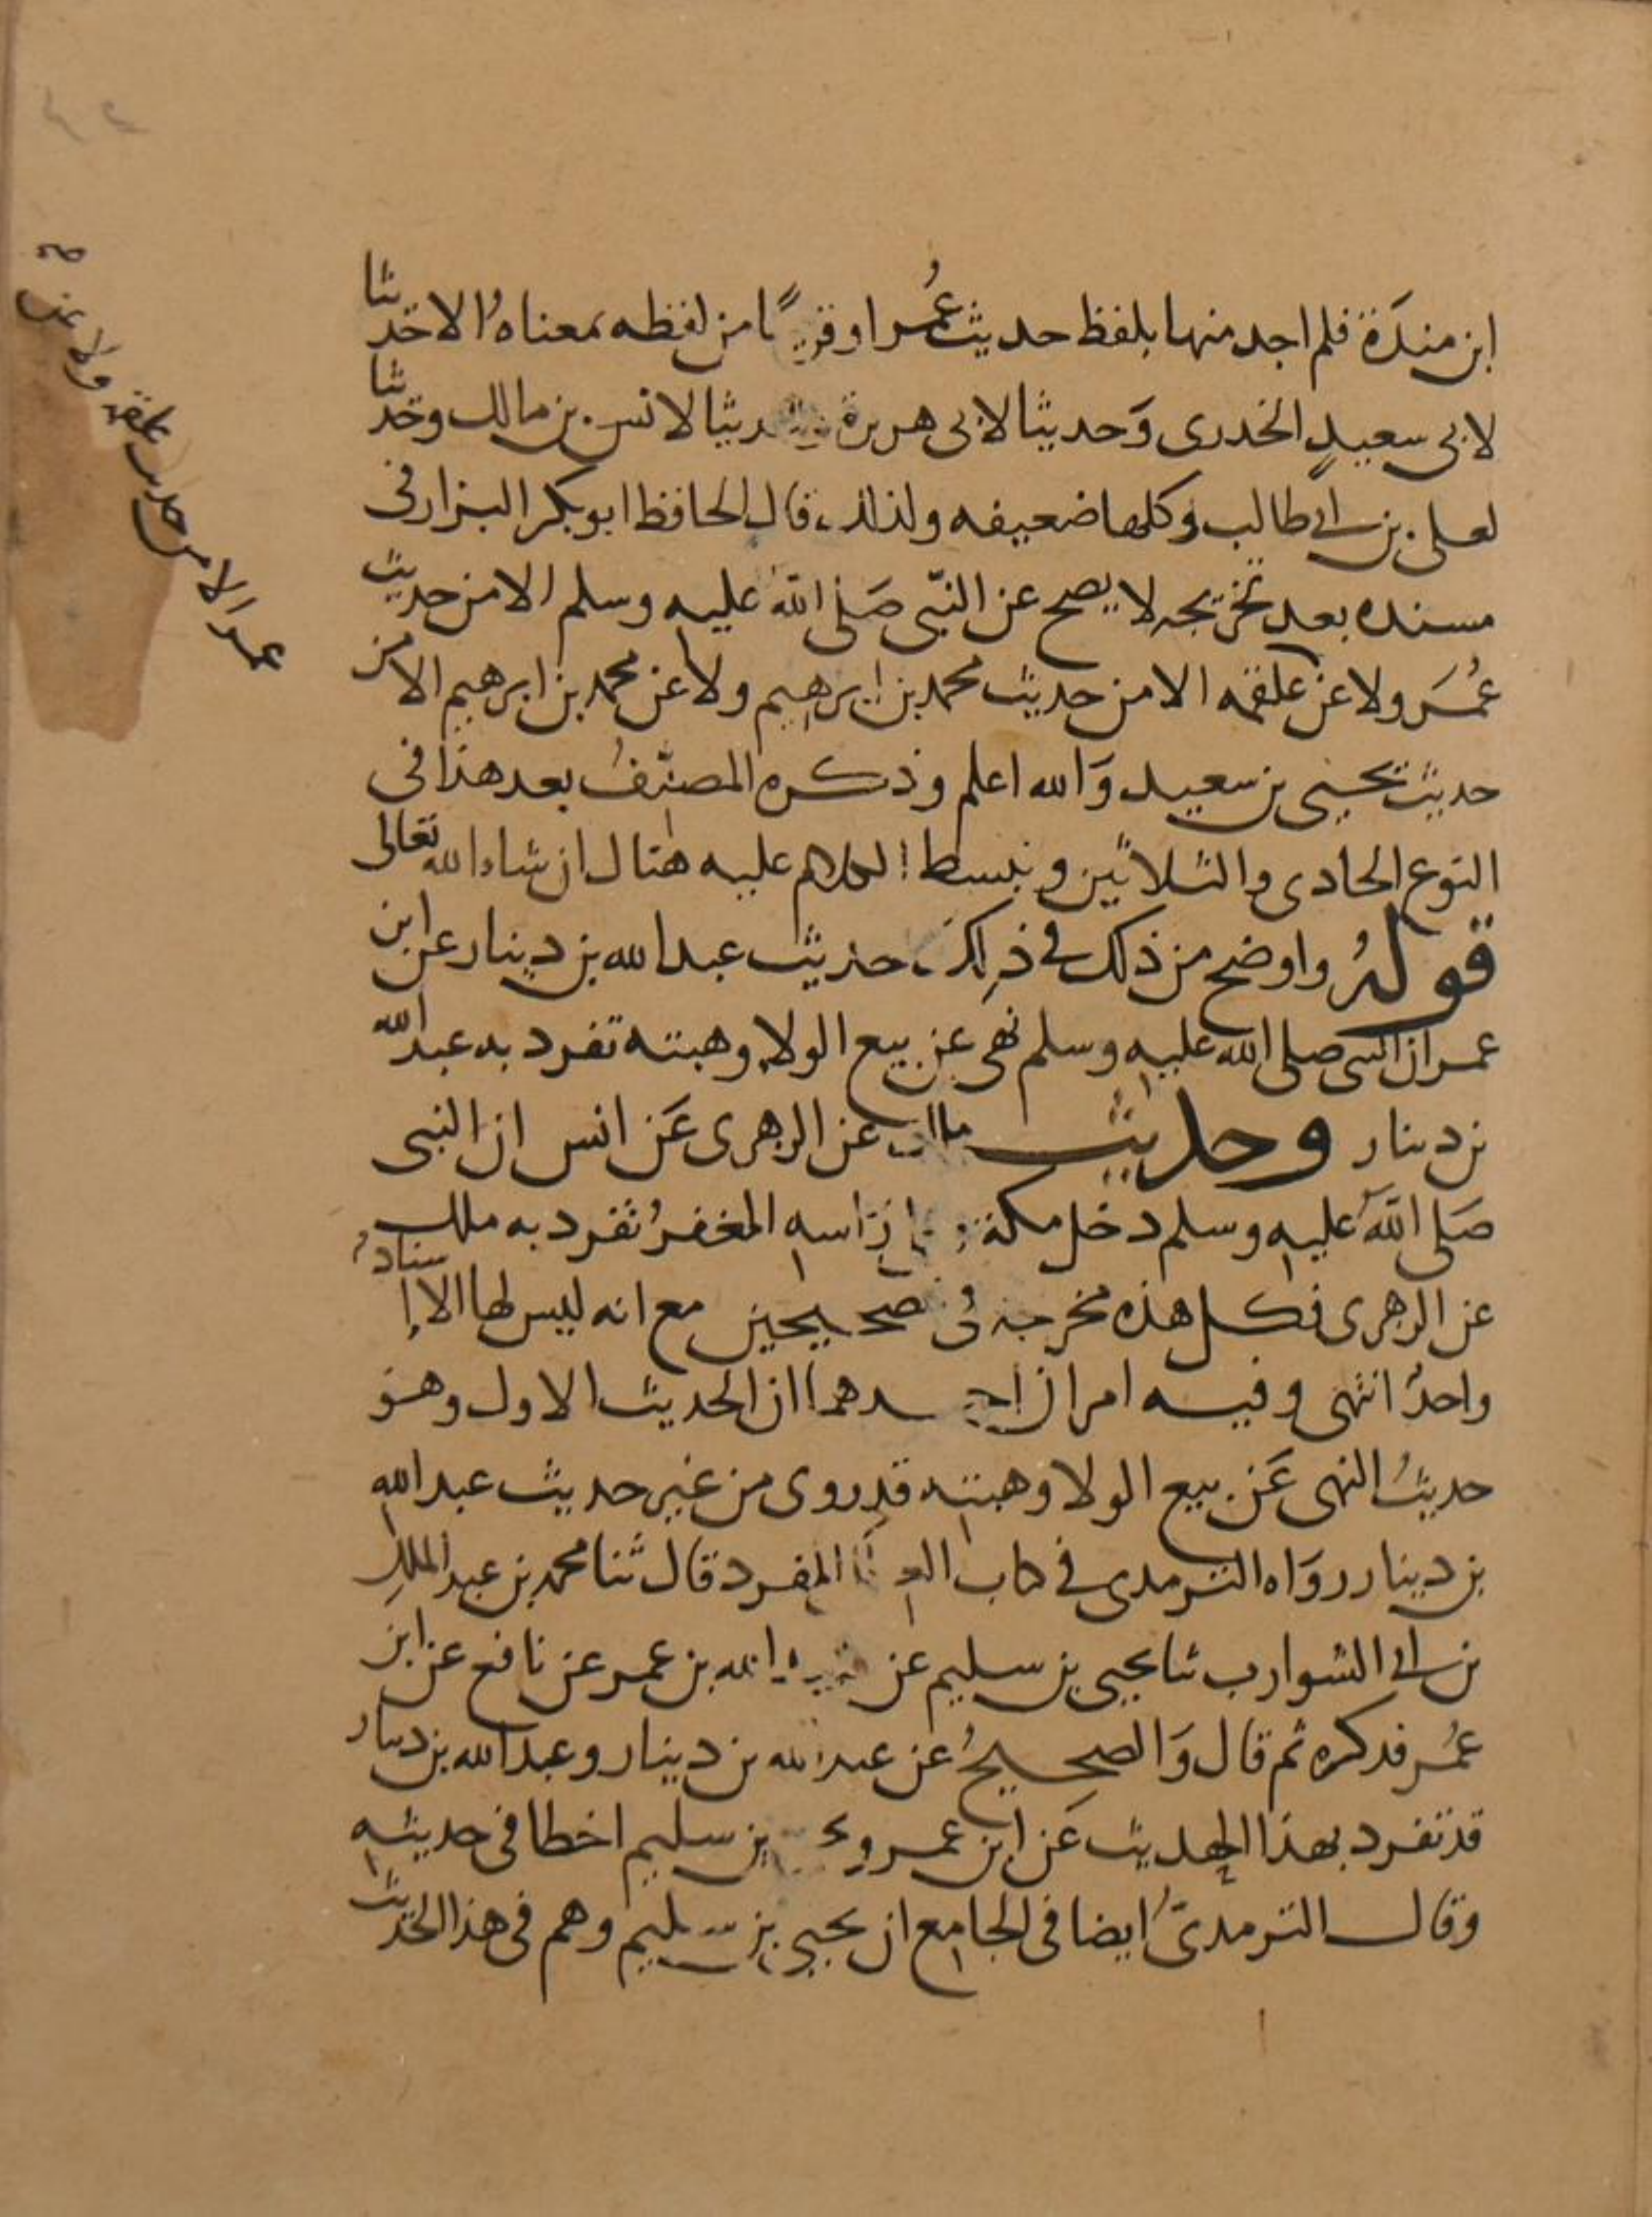 ابن مندة فلم اجد منها بلفظ حديث عُمر او قريبًا من لفظه بمعناه الا حديثا
لابي سعيدٍ الخدرى وَحديثا لابى هريرة وحديثا لانس بن مالك وحديثا
لعلى بن ابي طالب وكلها ضعيفه ولذلك قال الحافظ ابو بكر البزار فى
مسنده بعد تخريجه لا يصح عن النّبى صَلى اللّه عليه وسلم الا من حديث
عُمَر ولا عن علقمه الا من حديث محمد بن ابرهيم ولا عن محمد بن ابرهيم الا من
حديث يحيى بن سعيد وَالله اعلم وذكره المصنّفُ بعد هذا فى
النوع الحادى والثلاثين ونبسط الكلام عليه هناك ان شاء الله تعالى
قولهُ واوضح من ذلك في ذلك حديث عبد الله بن دينار عن ابن
عمر ان النبى صلى الله عليه وسلم نهى عن بيع الولاء وهبته تفرد به عبد الله
بن دينار وحديث مالك عن الزهرى عَن انس ان النبى
صَلى اللّه عليه وسلم دخل مكة وعلى رَاسه المغفرُ تفرد به ملك
عن الزهرى فكل هذه مخرجة فى الصحيحين مع انه ليس لها الا اسنادٌ
واحدٌ انتهى وفيه امران احدهما ان الحديث الاول وهو
حديثُ النهى عَن بيع الولا وهبته قد روى من غير حديث عبد الله
بن دينار روَاه الترمدى في كتاب العلل المفرد قال ثنا محمد بن عبد الملك
بن ابي الشوارب ثنا يحيى بن سليم عن عبيد الله بن عمر عن نافع عن ابن
عُمر فدكره ثم قال وَالصحيحُ عن عبد الله بن دينار وعبد الله بن دينار
قد تفرد بهذا الحديث عَن ابن عمر ويحيى بن سليم اخطا فى حديثه
وقال الترمدىّ ايضا فى الجامع ان يحيى بن سليم وهم فى هذا الحديث
عمر الا من حديث علقمه ولا عن صح